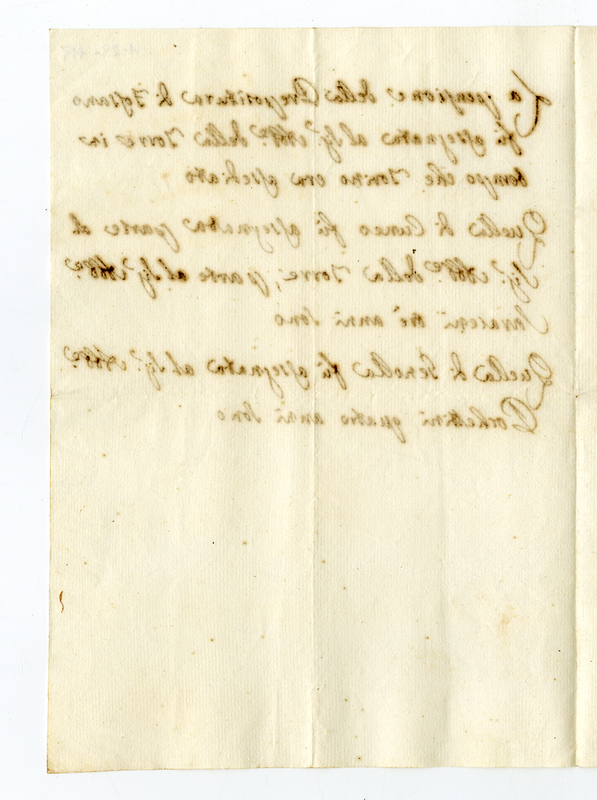 La pensione della Prepositura di Fossano
fù assegnata al Sig.r Abb.e della Torre in
tempo che Torino era assediato
Quella di Cuneo fù assegnata parte al
Sig.r Abb.e della Torre, parte al Sig.r Abb.e
tre anni sono
Quella di fù assegnata al Sig.r Abb.e
quatro anni sono